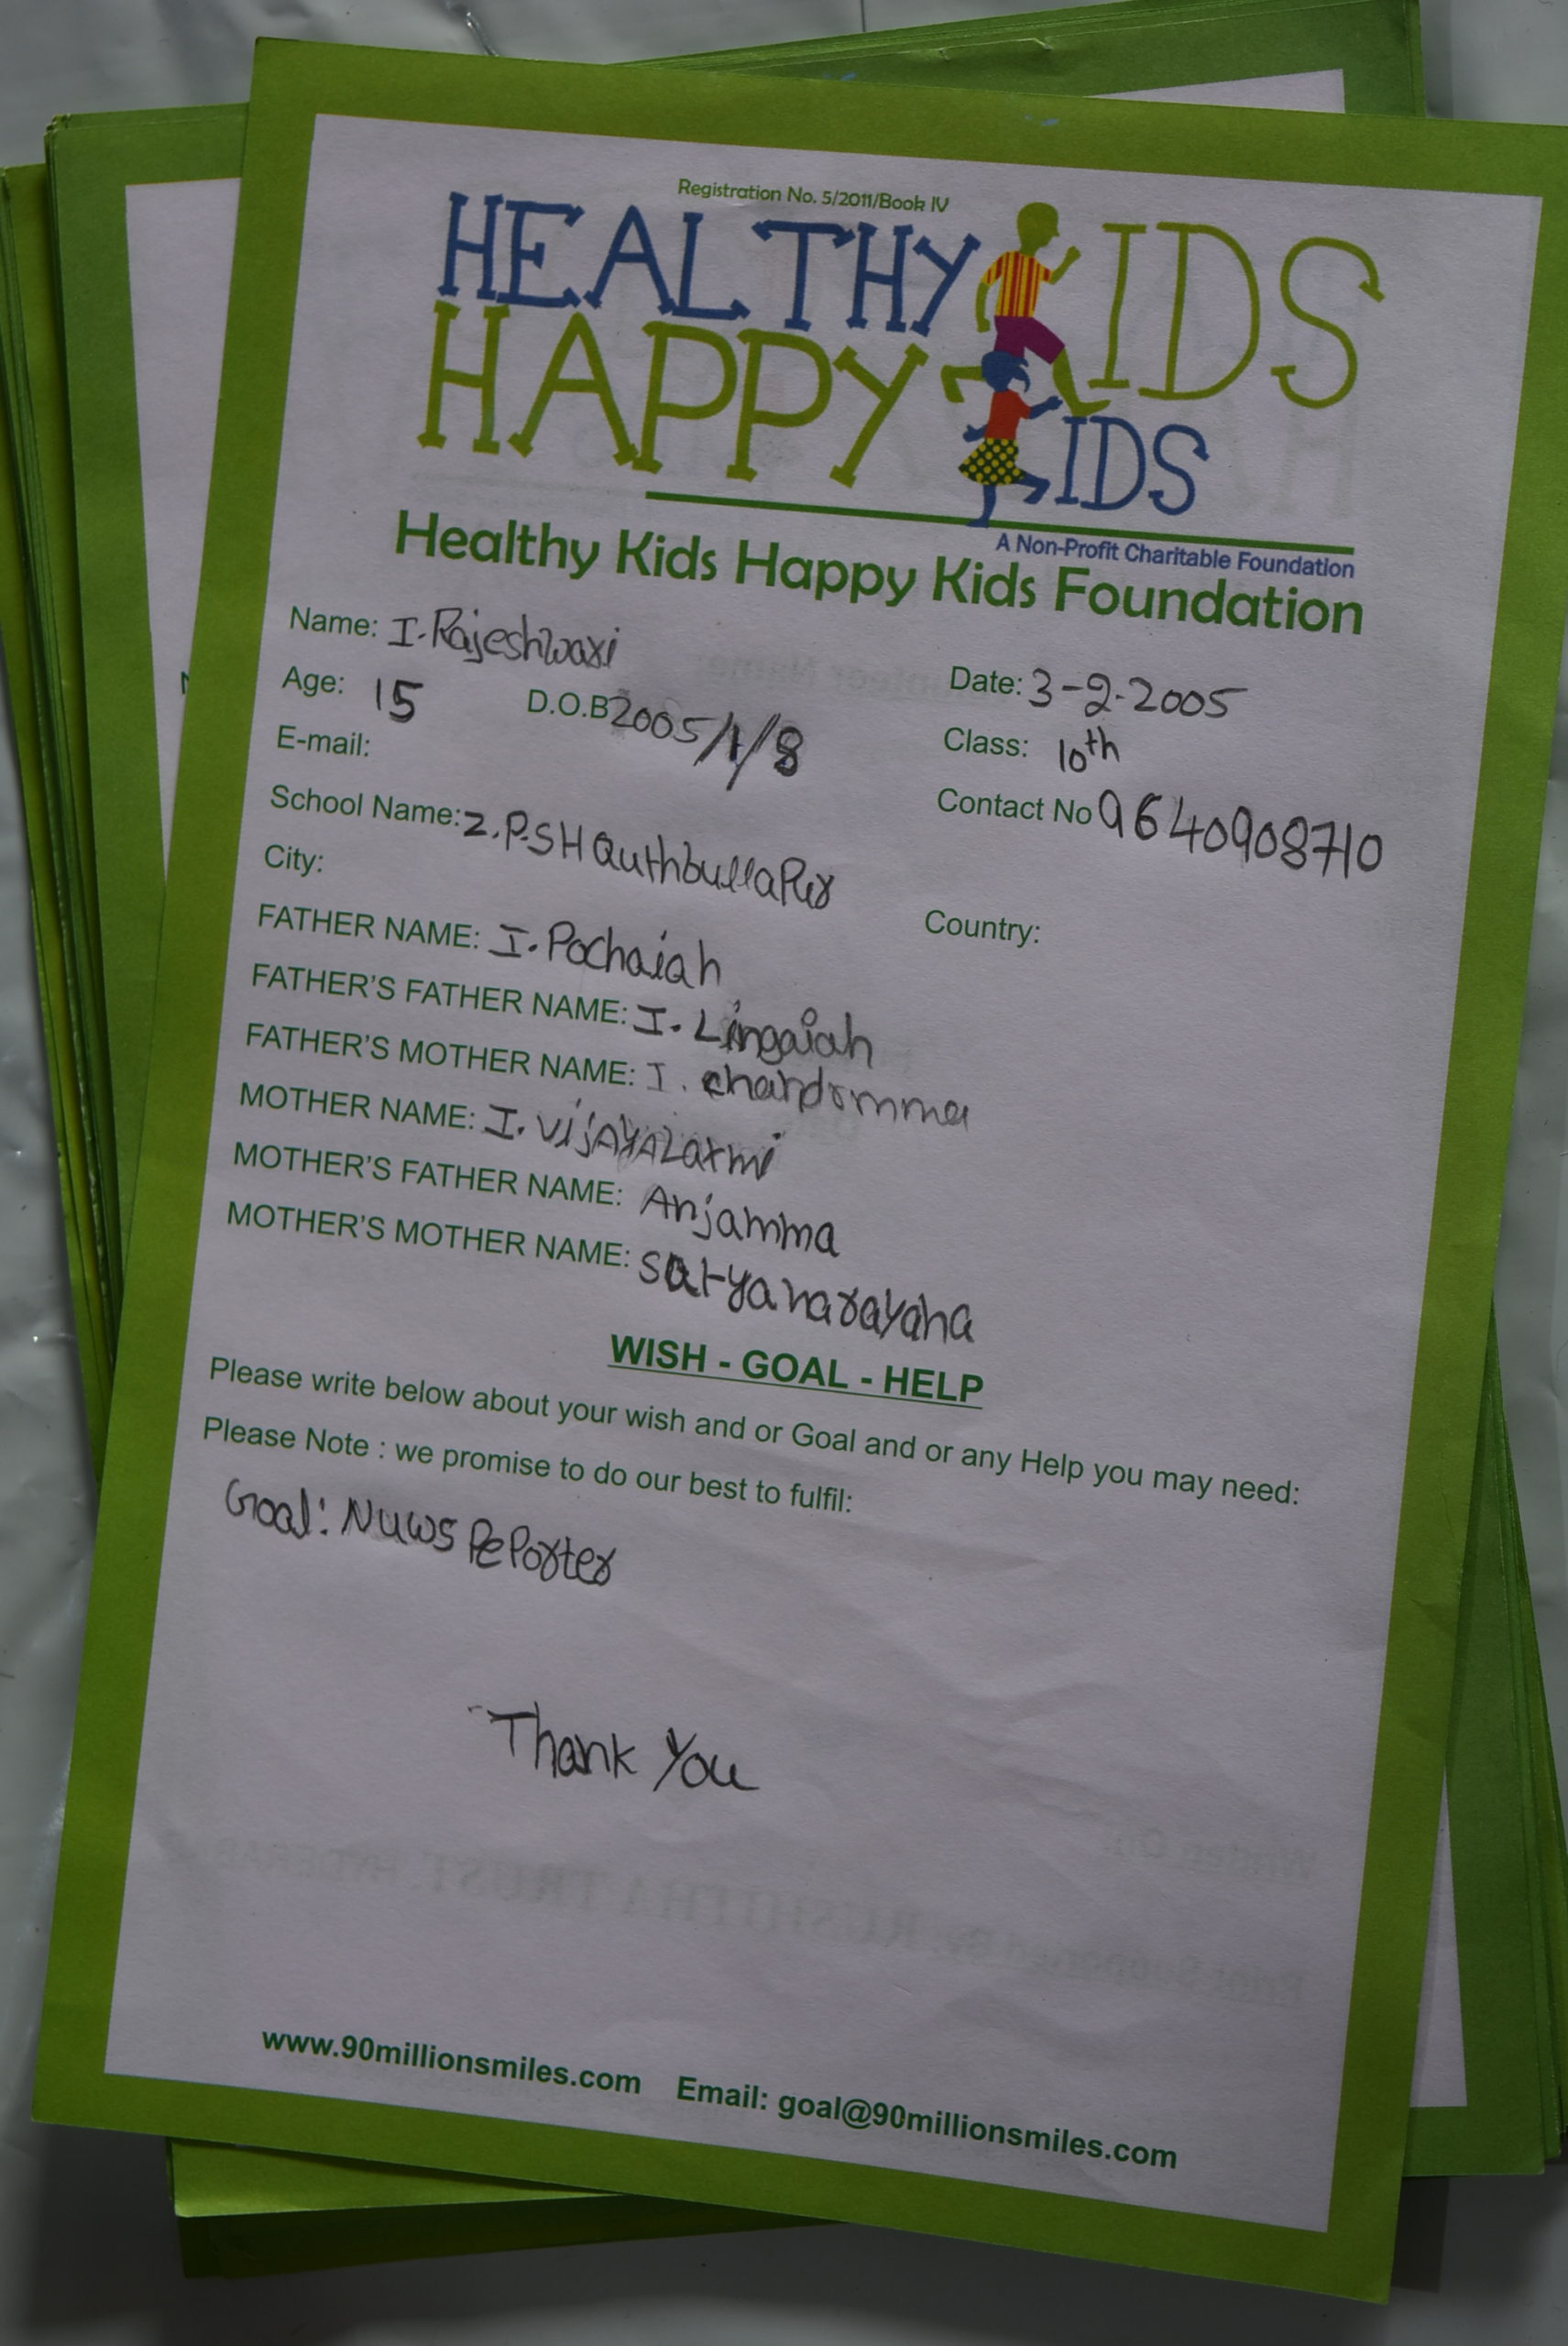 Registration No. 5/2011/Book IV
HEALTHY KIDS
HAPPY KIDS
A Non-Profit Charitable Foundation
Healthy Kids Happy Kids Foundation
Name: I. Rajeshwari
Date: 3-2-2005
Age: 15 D.O.B 2005/1/8
Class: 10th
E-mail:
Contact No 9640908710
School Name: Z.P.S H Quthbullapur
City:
Country:
FATHER NAME: I. Pochaiah
FATHER'S FATHER NAME: I. Lingaiah
FATHER'S MOTHER NAME: I.
MOTHER NAME: I. VijAYALaxmi
MOTHER'S FATHER NAME: Anjamma
MOTHER'S MOTHER NAME: Satyanarayana
WISH - GOAL - HELP
Please write below about your wish and or Goal and or any Help you may need:
Please Note : we promise to do our best to fulfil:
Goal: Nuws RePorter
Thank You
www.90millionsmiles.com Email: goal@90millionsmiles.com